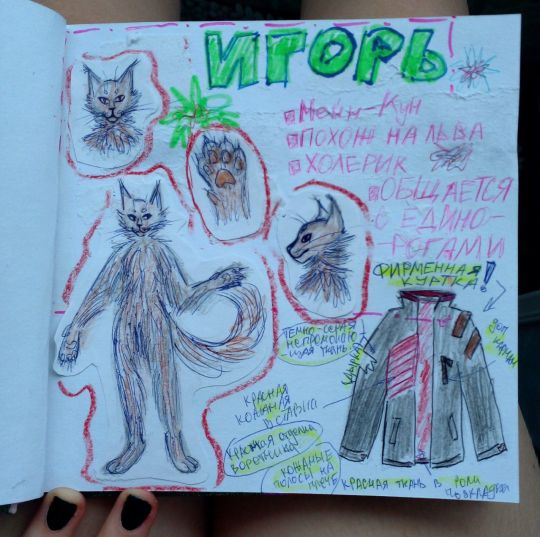 ИГОРЬ
Мейн-Кун
ПОХОЖ НА ЛЬВА
ХОЛЕРИК
ОБЩАЕТСЯ
С ЕДИНО-
РОГАМИ
ФИРМЕННАЯ
КУРТКА!
ТЕМНО-СЕРАЯ
НЕПРОМОКАЮ-
ЩАЯ ТКАНЬ
ДОП.
КАРМАН
КРАСНАЯ
КОЖАНАЯ
ВСТАВКА
КРАСНАЯ ОТДЕЛКА
ВОРОТНИКА
КОЖАНЫЕ
ПОЛОСЫ НА
ПЛЕЧЕ
КРАСНАЯ ТКАНЬ В РОЛИ
ПОДКЛАДКИ